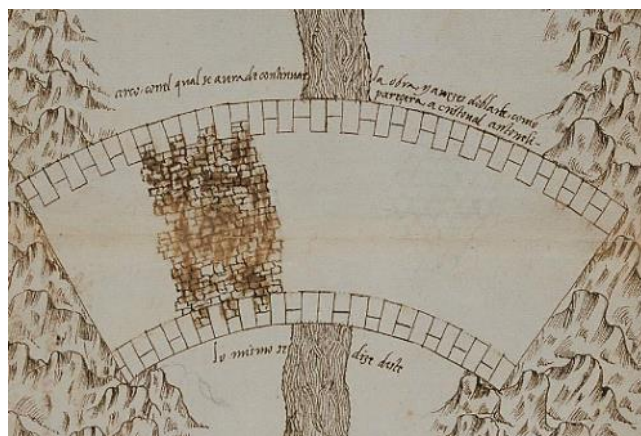 arco. conel qual se aura de continuar
la obra y como
pareçera a cristoual antoneli-
lo mismo se dize deste